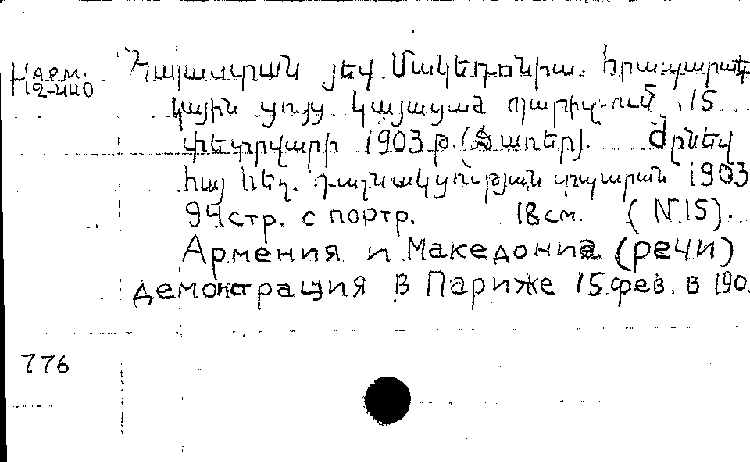 Н арм. Հայաստան յեվ Մակեդոնիա. հրապարակ
2-440
կային ցույց կայացած Պարիզում, 15
փետրվարի 1903 թ. (Ճառեր). Ժընեվ
հայ հեղ. դաշնակցության տպարան 1903
94 стр. с портр. 18 см. (N 15).
Армения и Македония (речи)
демонстрация в Париже 15 фев. в 190
776